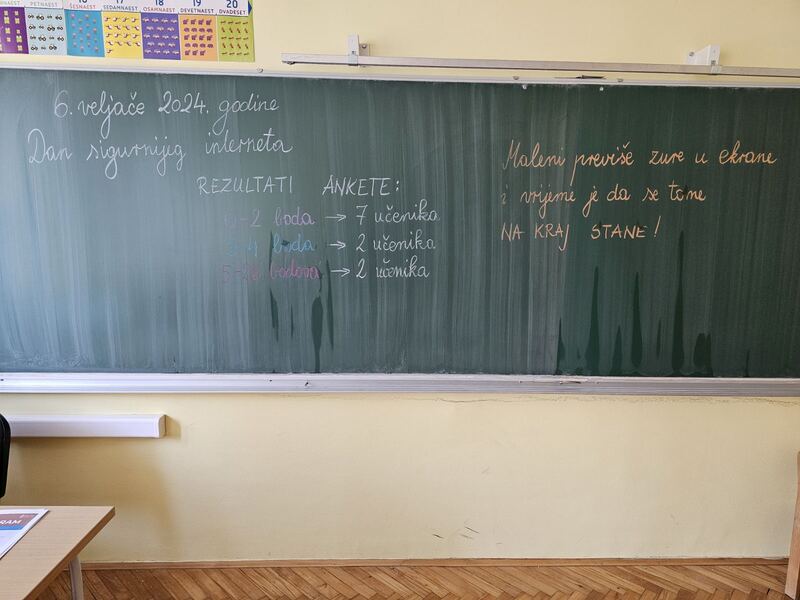 PETNAEST ŠESNAEST SEDAMNAEST OSAMNAEST DEVETNAEST DVADESET
17 18 19 20
6. veljače 2024. godine
Dan sigurnijig interneta
REZULTATI ANKETE:
0-2 boda → 7 učenika
3-4 boda → 2 učenika
bodova → 2 učenika
Maleni previše zure u ekrane
i vrijeme je da se tome
NA KRAJ STANE!